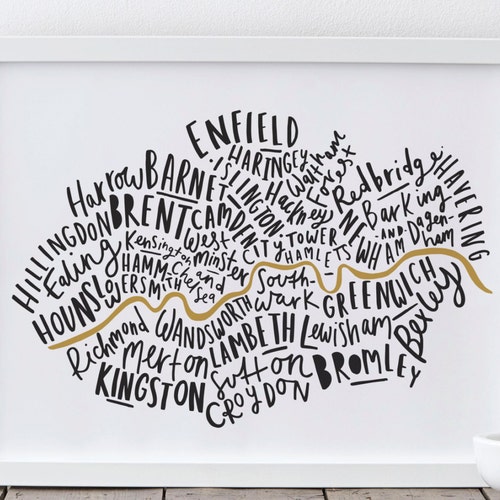 ENFIELD
HARINGEY
Waltham Forest
Redbridge
HAVERING
Harrow
BARNET
ISLINGTON
Hackney
Barking
-AND-
Dagenham
HILLINGDON
BRENT
CAMDEN
NEWHAM
Ealing
Kensington
and
Chelsea
West
minster
CITY
TOWER
HAMLETS
HOUNSLOW
HAMM
ERSMITH
South-
wark
GREENWICH
Bexley
Richmond
WANDSWORTH
LAMBETH
Lewisham
Merton
Sutton
BROMLEY
KINGSTON
CROYDON